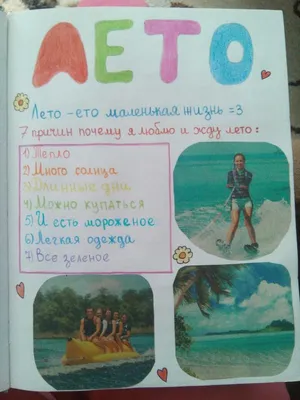 ЛЕТО
Лето - ето маленькая жизнь =3
7 причин почему я люблю и жду лето:
1) Тепло
2) Много солнца
3) Длинные дни
4) Можно купаться
5) И есть мороженое
6) Легкая одежда
7) Все зеленое